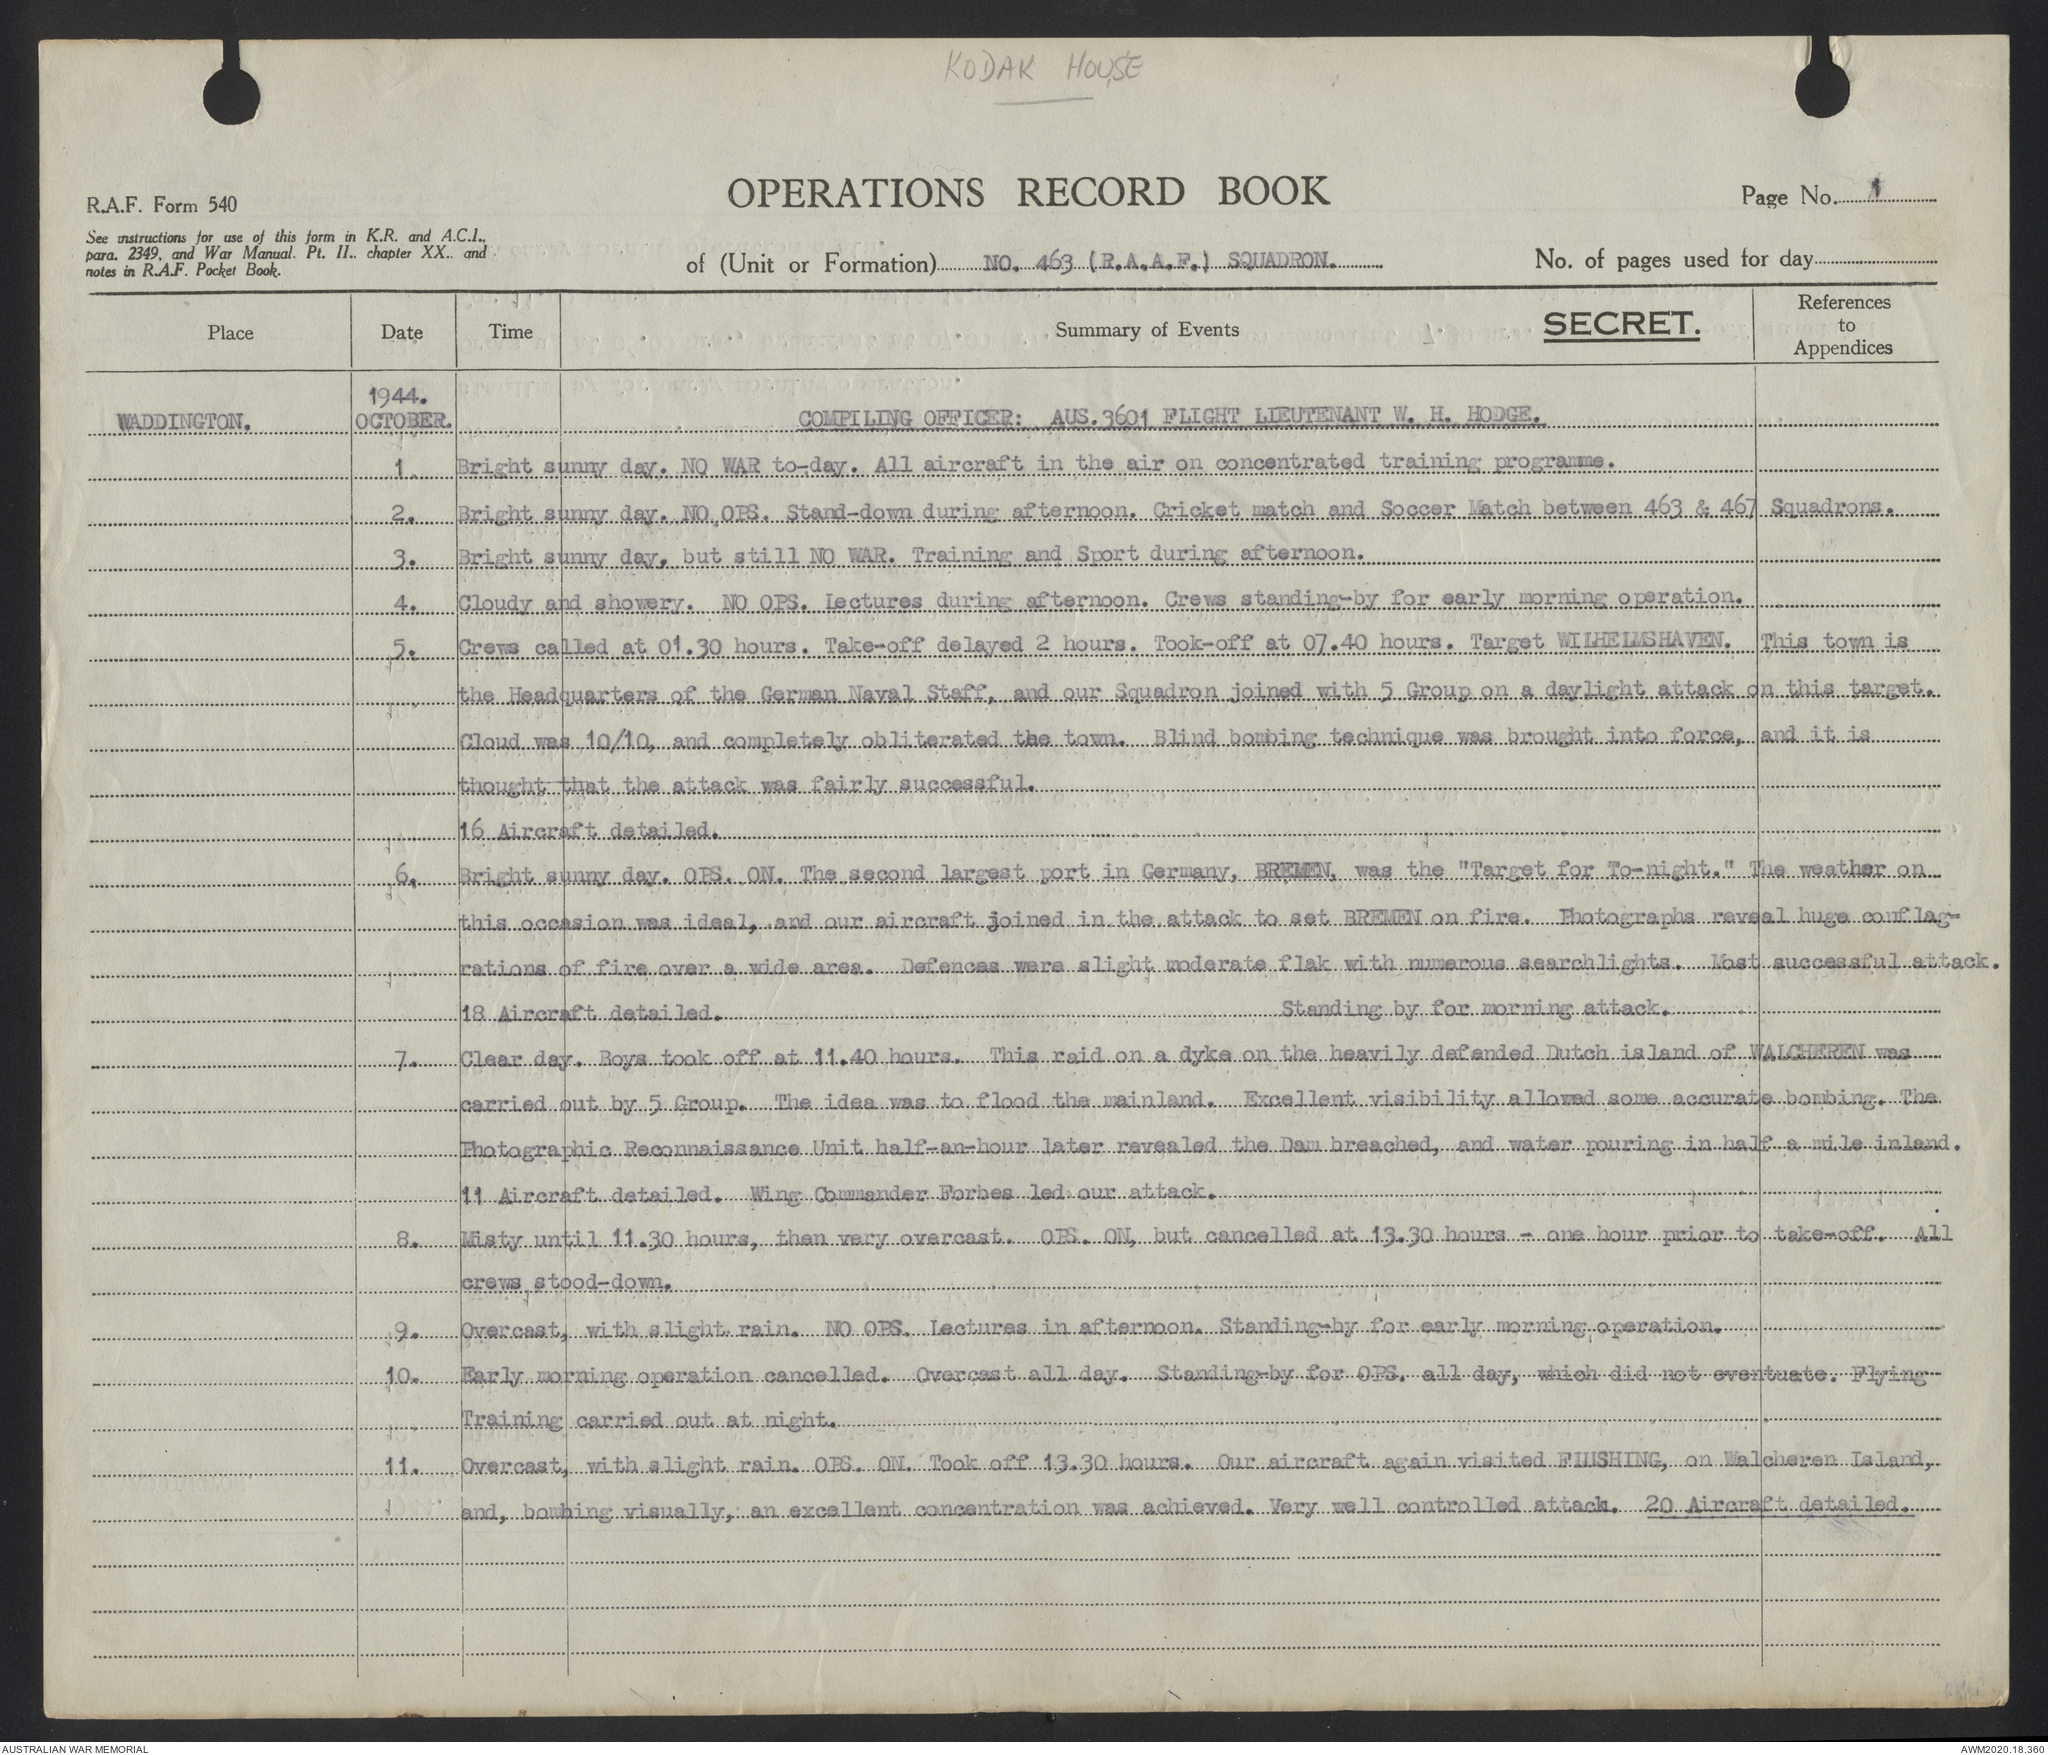 KODAK HOUSE
R.A.F. Form 540
OPERATIONS RECORD BOOK
Page No. 1
See instructions for use of this form in K.R. and A.C.I.,
para. 2349, and War Manual. Pt. II., chapter XX.. and
notes in R.A.F. Pocket Book.
of (Unit or Formation) NO. 463 (R.A.A.F.) SQUADRON.
No. of pages used for day
Place
Date
Time
Summary of Events
SECRET.
References
to
Appendices
1944.
WADDINGTON. OCTOBER. COMPILING OFFICER: AUS.3601 FLIGHT LIEUTENANT W. H. HODGE.
1. Bright sunny day. NO WAR to-day. All aircraft in the air on concentrated training programme.
2. Bright sunny day. NO OPS. Stand-down during afternoon. Cricket match and Soccer Match between 463 & 467 Squadrons.
3. Bright sunny day, but still NO WAR. Training and Sport during afternoon.
4. Cloudy and showery. NO OPS. Lectures during afternoon. Crews standing-by for early morning operation.
5. Crews called at 01.30 hours. Take-off delayed 2 hours. Took-off at 07.40 hours. Target WILHELMSHAVEN. This town is
the Headquarters of the German Naval Staff, and our Squadron joined with 5 Group on a daylight attack on this target.
Cloud was 10/10, and completely obliterated the town. Blind bombing technique was brought into force, and it is
thought that the attack was fairly successful.
16 Aircraft detailed.
6. Bright sunny day. OPS. ON. The second largest port in Germany, BREMEN, was the "Target for To-night." The weather on
this occasion was ideal, and our aircraft joined in the attack to set BREMEN on fire. Photographs reveal huge conflag-
rations of fire over a wide area. Defences were slight moderate flak with numerous searchlights. Most successful attack.
18 Aircraft detailed. Standing by for morning attack.
7. Clear day. Boys took off at 11.40 hours. This raid on a dyke on the heavily defended Dutch island of WALCHEREN was
carried out by 5 Group. The idea was to flood the mainland. Excellent visibility allowed some accurate bombing. The
Photographic Reconnaissance Unit half-an-hour later revealed the Dam breached, and water pouring in half a mile inland.
11 Aircraft detailed. Wing Commander Forbes led our attack.
8. Misty until 11.30 hours, then very overcast. OPS. ON, but cancelled at 13.30 hours - one hour prior to take-off. All
crews stood-down.
9. Overcast, with slight rain. NO OPS. Lectures in afternoon. Standing-by for early morning operation.
10. Early morning operation cancelled. Overcast all day. Standing-by for OPS. all day, which did not eventuate. Flying
Training carried out at night.
11. Overcast, with slight rain. OPS. ON. Took off 13.30 hours. Our aircraft again visited FLUSHING, on Walcheren Island,
and, bombing visually, an excellent concentration was achieved. Very well controlled attack. 20 Aircraft detailed.
AUSTRALIAN WAR MEMORIAL
AWM2020.18.360